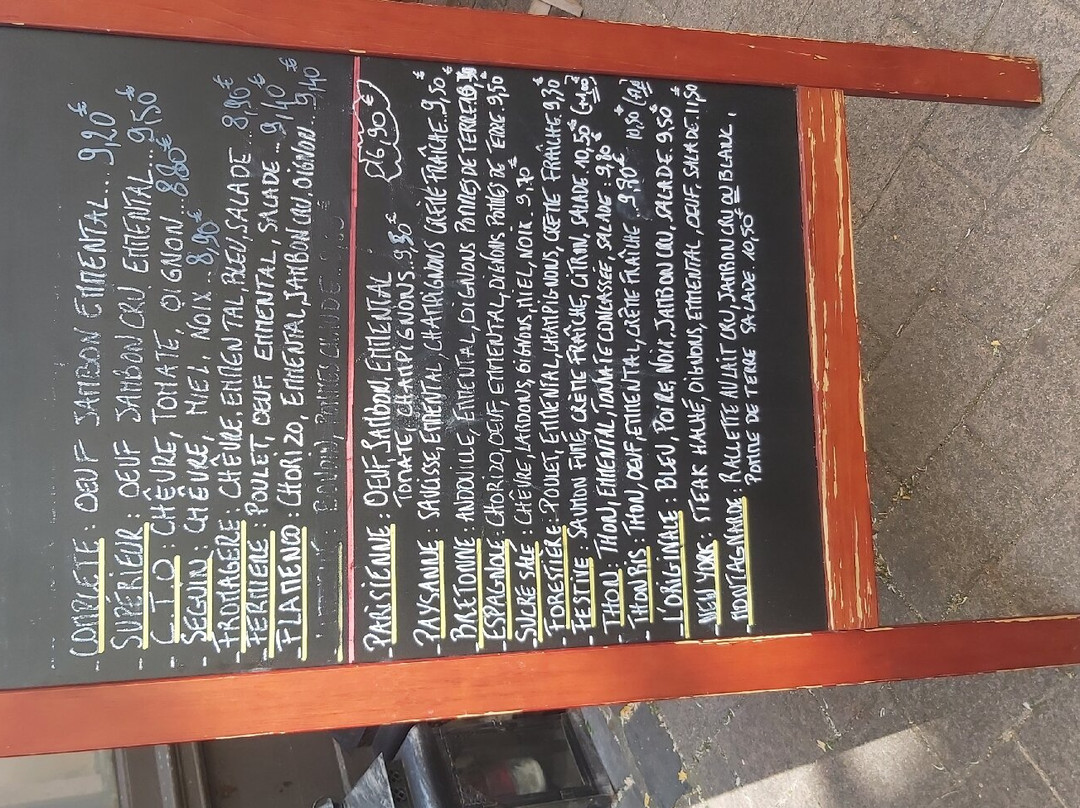 - COMPLÈTE : OEUF JAMBON EMMENTAL... 9,20€
- SUPÉRIEUR : OEUF JAMBON CRU EMMENTAL... 9,50€
- C.T.O : CHÊVRE, TOMATE, OIGNON... 8,80€
- SEGUIN : CHÊVRE, MIEL, NOIX... 8,90€
- FROMAGÈRE : CHÊVRE, EMMENTAL, BLEU, SALADE... 8,90€
- FERMIÈRE : POULET, OEUF, EMMENTAL, SALADE... 9,40€
- FLAMENCO : CHORIZO, EMMENTAL, JAMBON CRU, OIGNON... 9,40€
BOUDIN, POMMES CHAUDE
- PARISIENNE : OEUF, JAMBON, EMMENTAL
TOMATE CHAMPIGNONS. 9,
- PAYSANNE : SAUCISSE, EMMENTAL, CHAMPIGNONS CRÈME FRAÎCHE.. 9,50€
- BRETONNE : ANDOUILLE, EMMENTAL, OIGNONS POMMES DE TERRE
- ESPAGNOLE : CHORIZO, OEUF, EMMENTAL, OIGNONS POMMES DE TERRE 9,50
- SUCRE SALÉ : CHÊVRE, LARDONS, OIGNONS, MIEL, NOIX 9,70€
- FORESTIÈRE : POULET, EMMENTAL, CHAMPIGNONS, CRÈME FRAÎCHE. 9,70
- FESTIVE : SAUMON FUMÉ, CRÈME FRAÎCHE, CITRON, SALADE 10,50€
- THON : THON, EMMENTAL, TOMATE CONCASSÉE, SALADE : 9,80€
- THON BIS : THON, OEUF, EMMENTAL, CRÈME FRAÎCHE 10,50
- L'ORIGINALE : BLEU, POIRE, NOIX, JAMBON CRU, SALADE 9,50€
- NEW YORK : STEAK HACHÉ, OIGNONS, EMMENTAL, OEUF, SALADE. 11,50
- MONTAGNARDE : RACLETTE AU LAIT CRU, JAMBON CRU OU BLANC,
POMME DE TERRE SALADE 10,50€